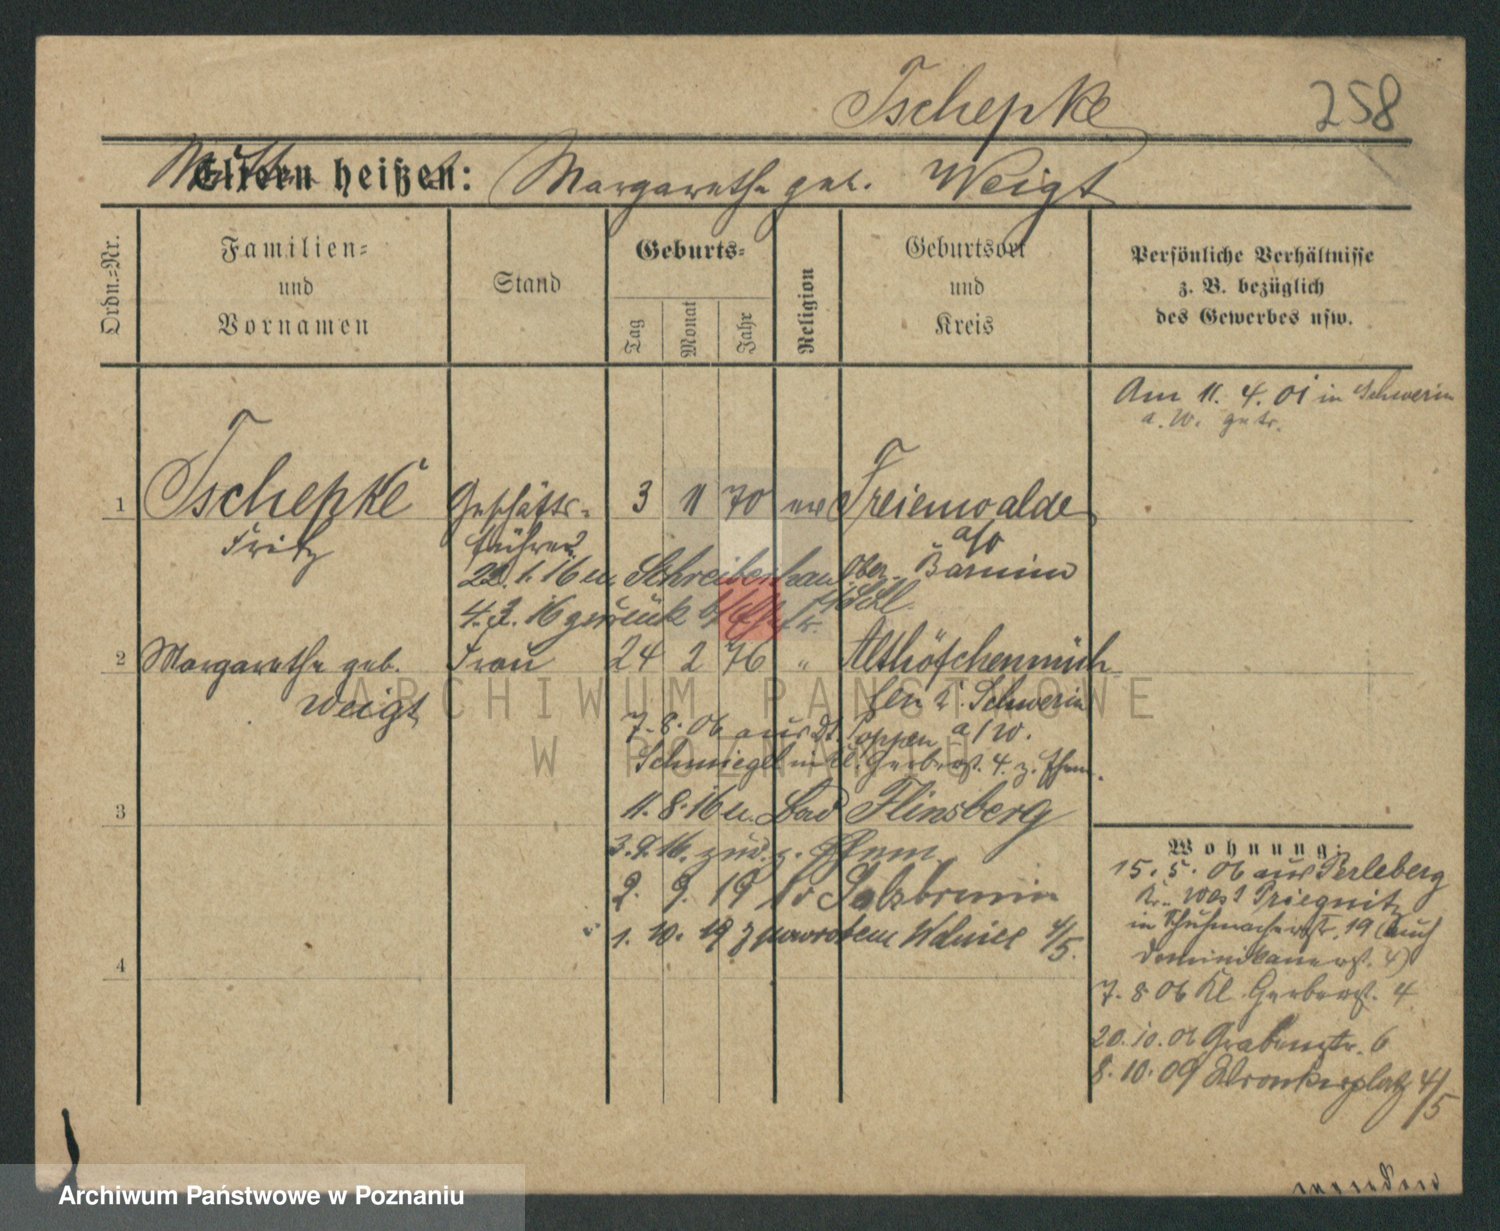 Tschepke
258
Eltern heißen: Margarethe geb. Weigt
Ordn.=Nr.
Familien=
und
Vornamen
Stand
Geburts=
Tag
Monat
Jahr
Religion
Geburtsort
und
Kreis
Persönliche Verhältnisse
z. B. bezüglich
des Gewerbes usw.
Am 11. 4. 01 in Schwerin
a. W. getr.
1 Tschepke Geschäfts- 3 11 70 ev Freienwalde
Fritz führer a/O
22. 1. 16 n. Schreiberhau Ober Barnim
4. 3. 16 zurück
2 Margarethe geb. Frau 24 2 76 " Althöfchenmüh
Weigt len K. Schwerin
7. 8. 06 aus Dt. Poppen a/W.
Schmiegel in Kl. Gerberst. 4. z. Ehem.
3
11. 8. 16 n. Bad Flinsberg
3. 9. 16. zur. z. Ehem.
2. 9. 19 Salzbrunn
1. 10. 19 4/5.
4
Wohnung:
15. 5. 06 aus Perleberg
Kr. West Priegnitz
in Schuhmacherst. 19 (auch
Dominikanerst. 4)
7. 8 06 Kl. Gerberst. 4
20. 10. 06 Grabenstr. 6
8. 10. 09 Wronkerplatz 4/5
wenden
ARCHIWUM PAŃSTWOWE
W POZNANIU
Archiwum Państwowe w Poznaniu